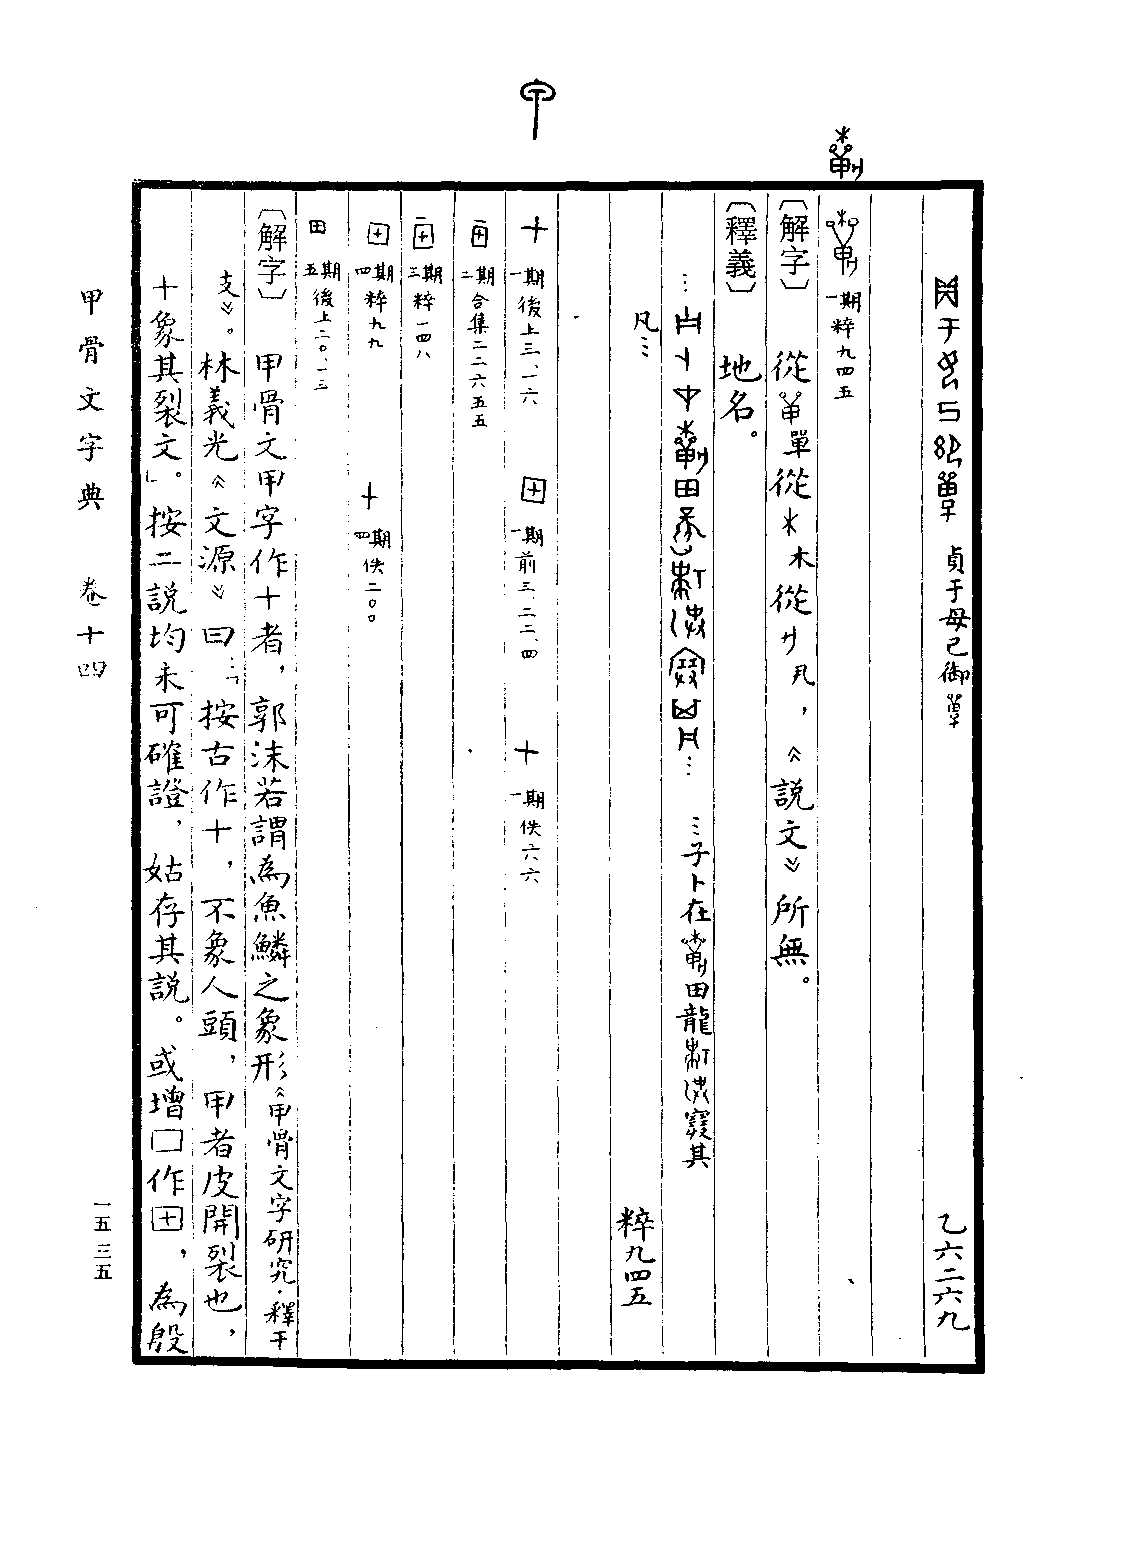 貞于母己御 乙六二六九
一期粹九四五
〔解字〕 從單從木從丮,《說文》所無。
〔釋義〕 地名。
…子卜在田龍其
凡… 粹九四五
十 一期後上三、一六 田 一期前三、二二、四 十 一期佚六六
二期合集二二六五五
三期粹一四八
田 四期粹九九 十 四期佚二〇〇
田 五期後上二〇、一三
〔解字〕 甲骨文甲字作十者,郭沫若謂為魚鱗之象形《甲骨文字研究·釋干
支》。林義光《文源》曰:「按古作十,不象人頭,甲者皮開裂也,
十象其裂文」。按二說均未可確證,姑存其說。或增囗作田,為殷
甲骨文字典 卷十四
一五三五